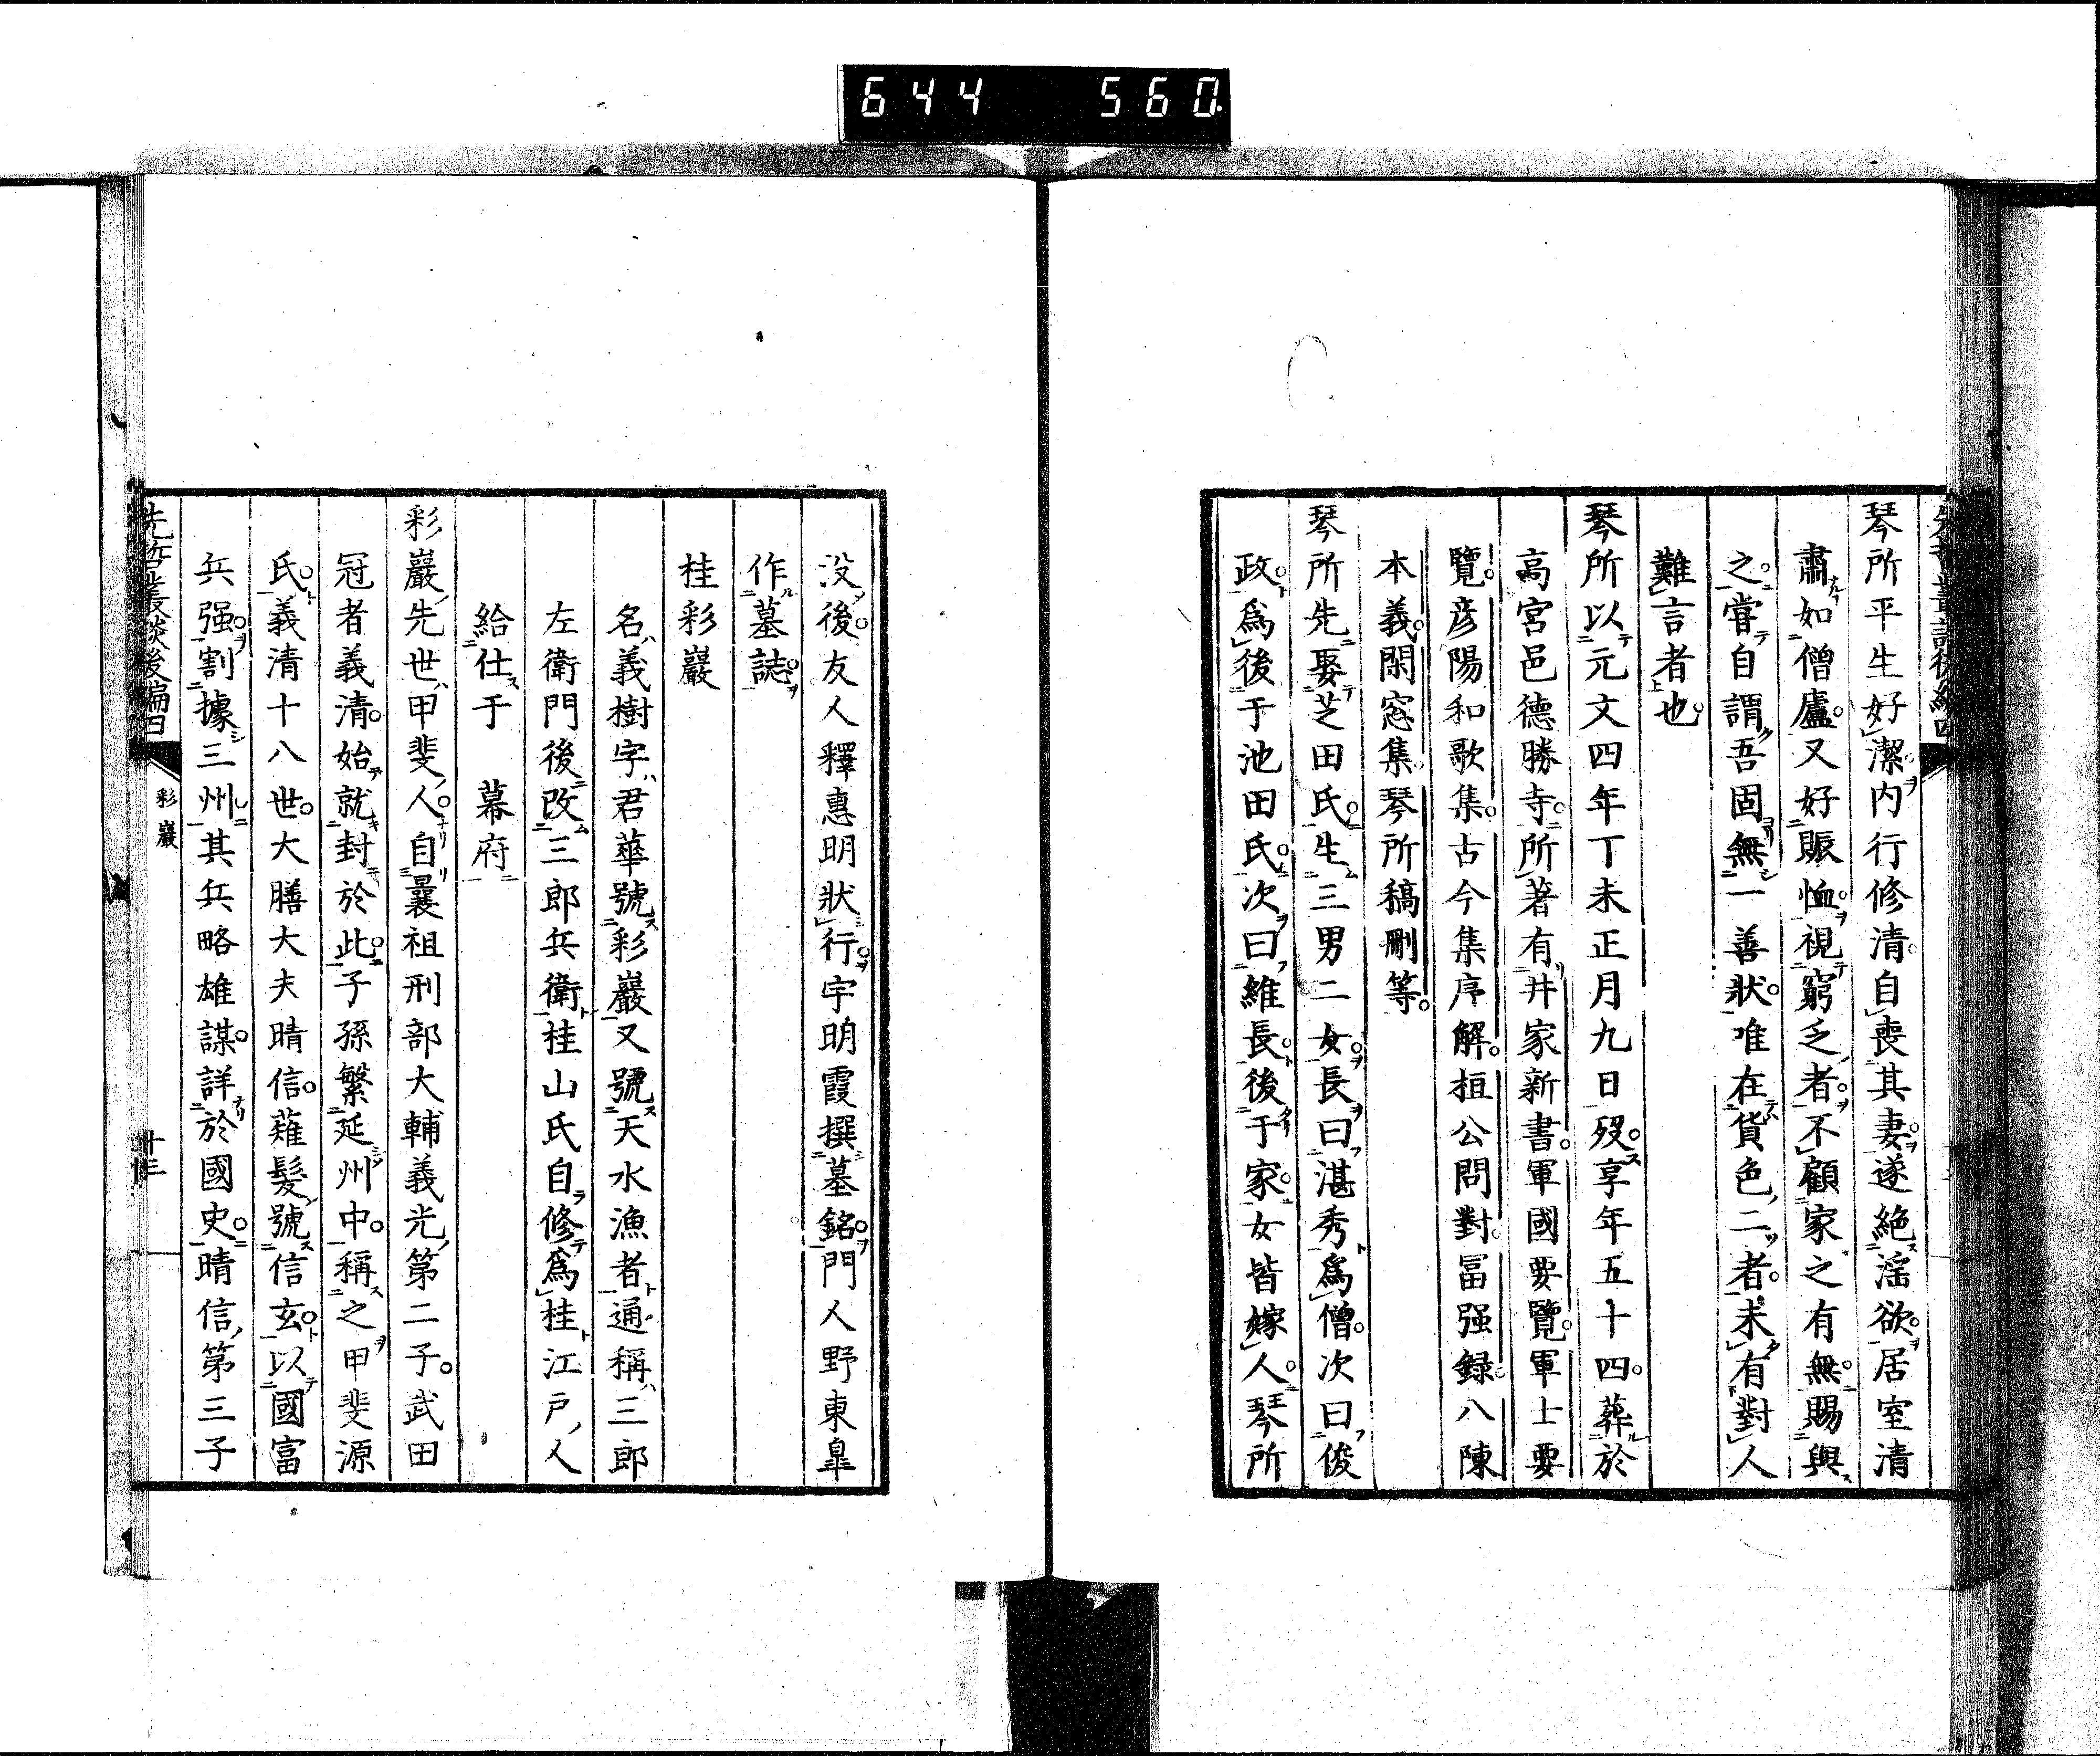 644 560
琴所平生好潔内行修清自喪其妻遂絶淫欲居室清
肅如僧廬又好賑恤視窮乏者不顧家之有無賜與
之嘗自謂吾固無一善狀唯在貨色二者未有對人
難言者也
琴所以元文四年丁未正月九日歿享年五十四葬於
高宮邑德勝寺所著有井家新書軍國要覽軍士要
覽彦陽和歌集古今集序解桓公問對冨强録八陳
本義閑窓集琴所稿刪等
琴所先娶芝田氏生三男二女長曰湛秀爲僧次曰俊
政爲後于池田氏次曰維長後于家女皆嫁人琴所
没後友人釋惠明狀行宇明霞撰墓銘門人野東皐
作墓誌
桂彩巖
名義樹字君華號彩巖又號天水漁者通稱三郎
左衛門後改三郎兵衛桂山氏自修爲桂江戸人
給仕于 幕府
彩巖先世甲斐人自曩祖刑部大輔義光第二子武田
冠者義清始就封於此子孫繁延州中稱之甲斐源
氏義清十八世大膳大夫晴信薙髮號信玄以國富
兵强割據三州其兵略雄謀詳於國史晴信第三子
先哲叢談後編四 彩巖 十三